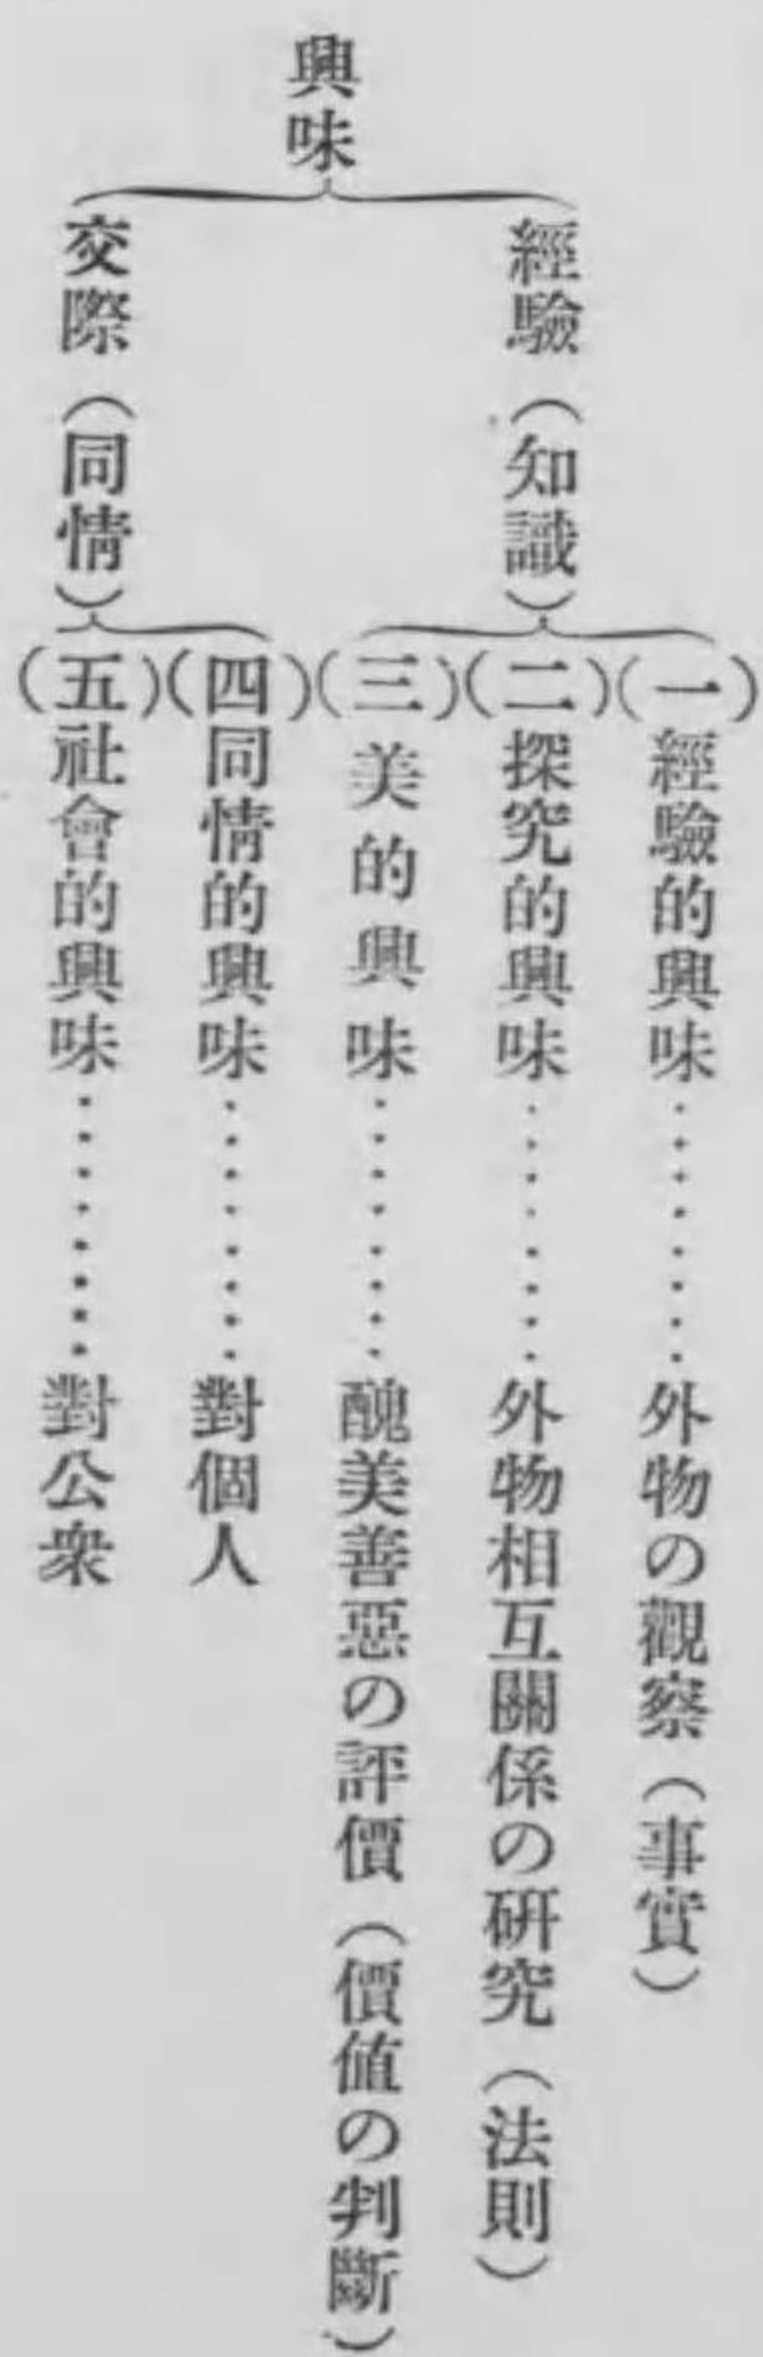 興味
經驗（知識）
（一）經驗的興味………外物の觀察（事實）
（二）探究的興味………外物相互關係の硏究（法則）
（三）美的興味………醜美善惡の評價（價値の判斷）
交際（同情）
（四）同情的興味………對個人
（五）社會的興味………對公衆